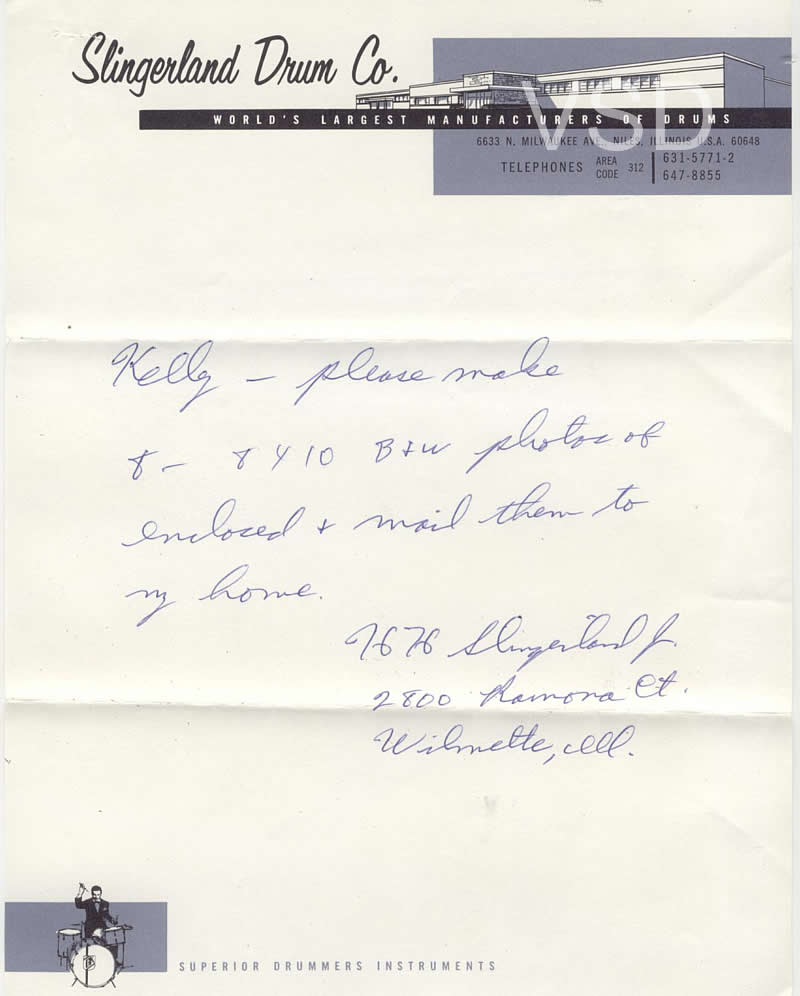 Slingerland Drum Co.
WORLD'S LARGEST MANUFACTURERS OF DRUMS
VSD
6633 N. MILWAUKEE AVE., NILES, ILLINOIS U.S.A. 60648
TELEPHONES AREA CODE 312 631-5771-2
647-8855
Kelly – please make
8 – 8 x 10 B+W photos of
enclosed + mail them to
my home.
H H Slingerland Jr.
2800 Ramona Ct.
Wilmette, Ill.
SUPERIOR DRUMMERS INSTRUMENTS